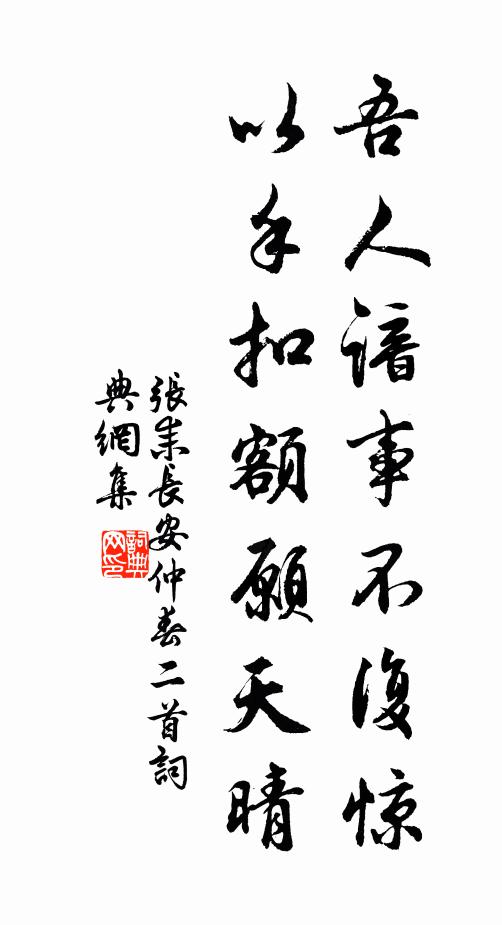 吾人谙事不復惊
以手扣额願天晴
張耒長安仲春二首詞
典網集
詞典网印